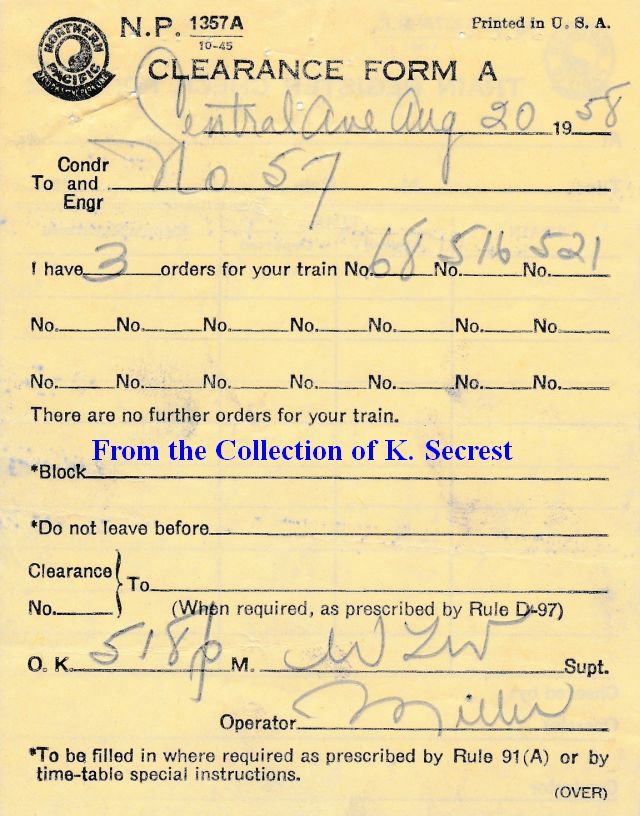 NORTHERN PACIFIC
N.P. 1357A
10-45
Printed in U. S. A.
CLEARANCE FORM A
Central Ave Aug 20 1958
Condr
To and No 57
Engr
I have 3 orders for your train No. 68 No. 516 No. 521
No. No. No. No. No. No. No.
No. No. No. No. No. No. No.
There are no further orders for your train.
From the Collection of K. Secrest
*Block
*Do not leave before
Clearance
To
No.
(When required, as prescribed by Rule D-97)
O. K. 518 p M. WLW Supt.
Operator Miller
*To be filled in where required as prescribed by Rule 91(A) or by
time-table special instructions.
(OVER)